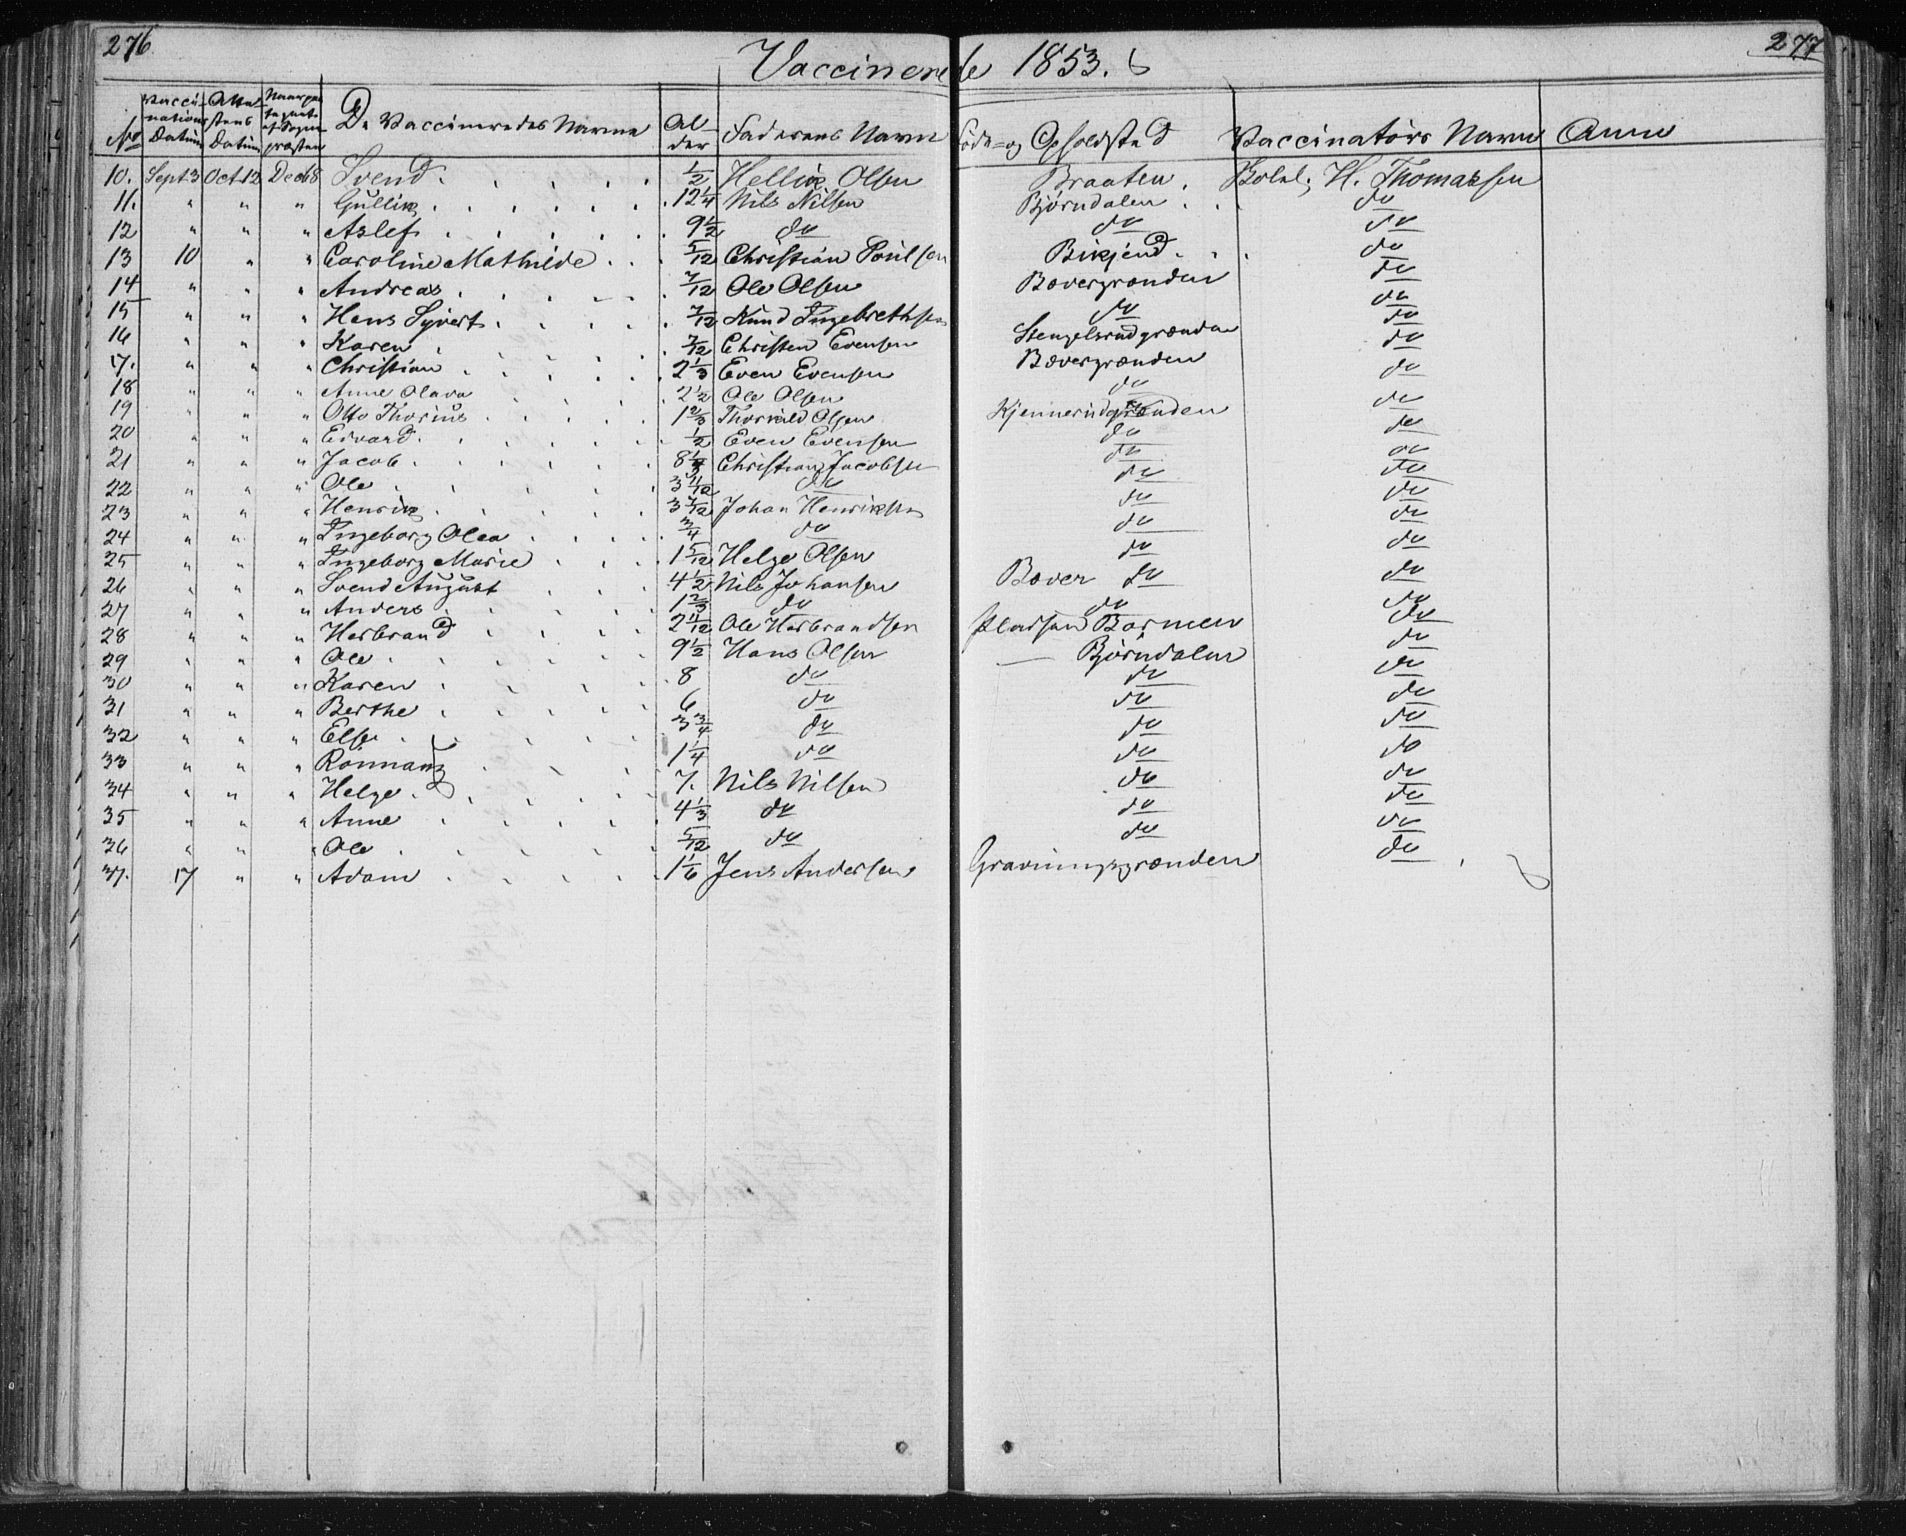 276 Vaccinerede 1853. 277
No Vaccinations Datum Attestens Datum De Vaccineredes Navne Alder Faderens Navn Føde- og Opholdsted Vaccinatørs Navn Anm
10. Sept 3 Oct 12 Dec 18 Svend ½ Hellik Olsen Braaten H. Thomassen
11. " " " Gullik 12¼ Nils Nilsen Bjørndalen do
12 " " " Aslef 9½ do do do
13 10 " " Caroline Mathilde 5/12 Christian Poulsen Bikjend do
14 " " " Andreas 7/12 Ole Olsen Bævergrænden do
15 " " " Hans Syvert 7/12 Knud Ingebrethsen do do
16 " " " Karen 7/12 Christen Evensen Stengelsrudgrænden do
17. " " " Christian 2⅓ Even Evensen Bævergrænden do
18 " " " Anne Olava 2½ Ole Olsen do do
19 " " " Otto Thorius 1⅔ Thorvald Olsen Kjennerudgrænden do
20 " " " Edvard ½ Even Evensen do do
21 " " " Jacob 8¼ Christian Jacobsen do do
22 " " " Ole 3 1/12 do do do
23 " " " Henrik 3 7/12 Johan Henriksen do do
24 " " " Ingeborg Olea ¾ do do do
25 " " " Ingeborg Marie 1 5/12 Helge Olsen do do
26 " " " Svend August 4½ Nils Johansen Bæver do do
27 " " " Anders 1⅔ do do do
28 " " " Herbrand 2 1/12 Ole Herbrandsen Pladsen Barmen do
29 " " " Ole 9½ Hans Olsen — Bjørndalen do
30 " " " Karen 8 do do do
31 " " " Berthe 6 do do do
32 " " " Else 3¾ do do do
33 " " " Rønnaug 1¼ do do do
34 " " " Helge 7. Nils Nilsen do do
35 " " " Anne 4⅓ do do do
36 " " " Ole 5/12 do do do
37. 17 " " Adam 1⅙ Jens Andersen Gravningsgrænden do